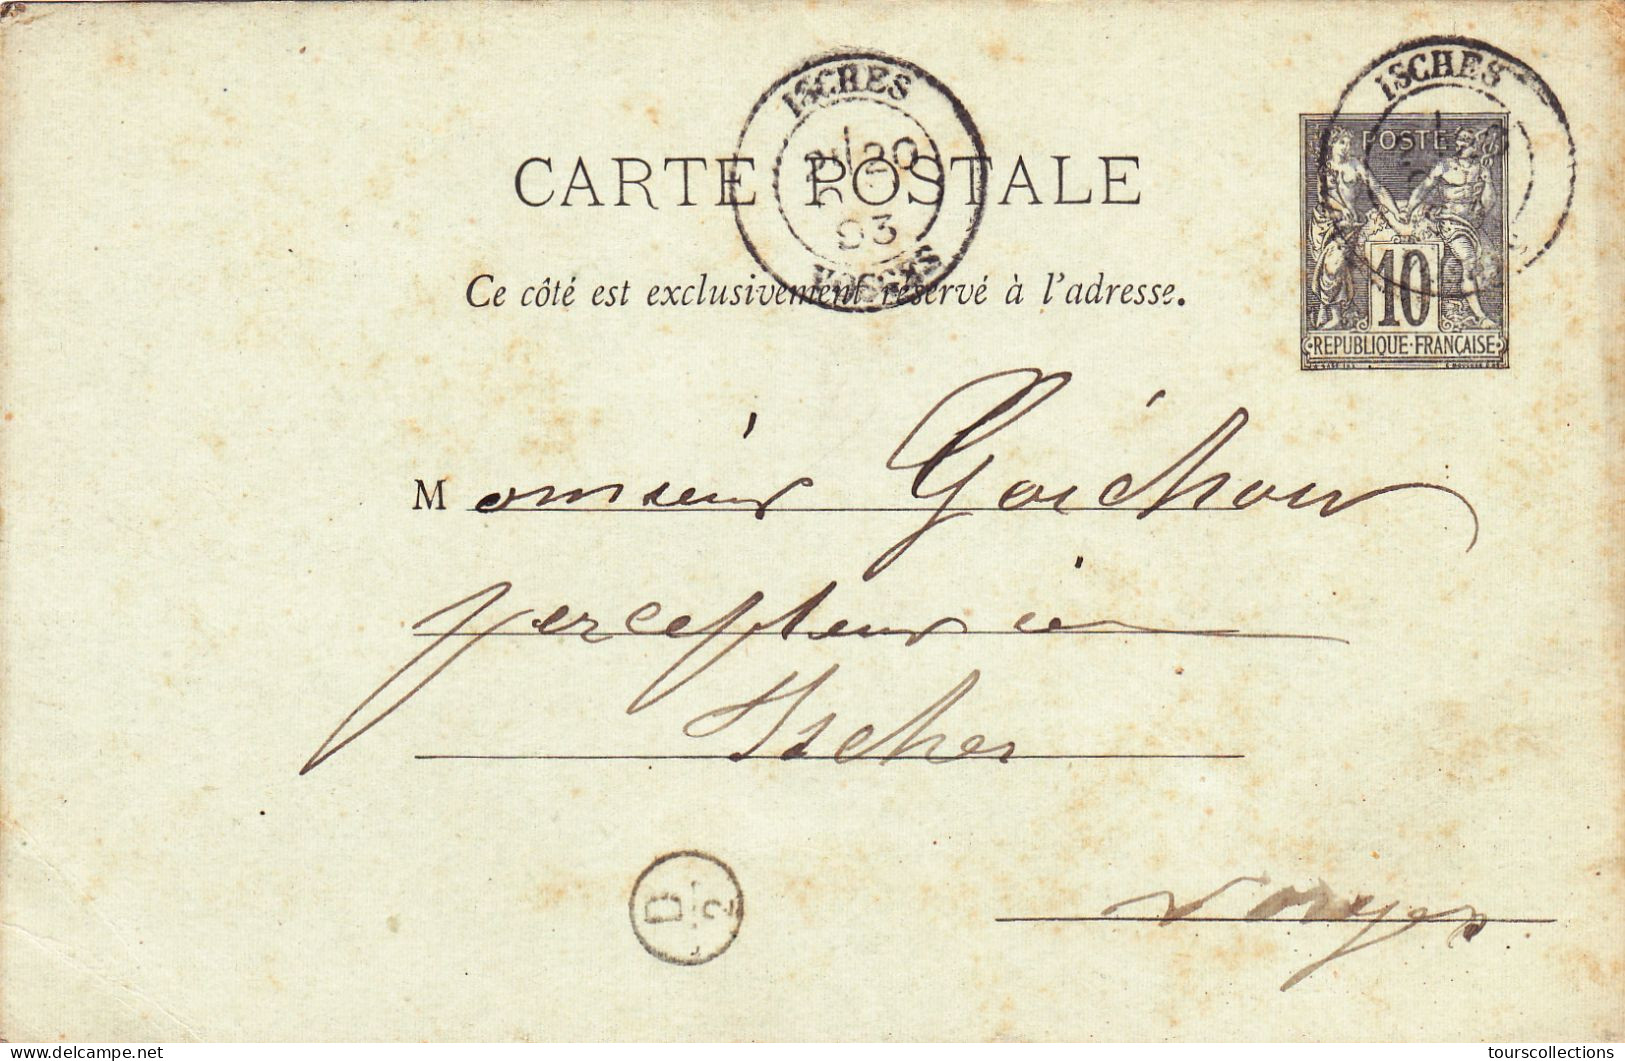 ISCHES
20
93
VOSGES
ISCHES
POSTE
10
REPUBLIQUE·FRANÇAISE
CARTE POSTALE
Ce côté est exclusivement réservé à l'adresse.
Monsieur
percepteur à
Isches
Vosges
D
2
delcampe.net
tourscollections